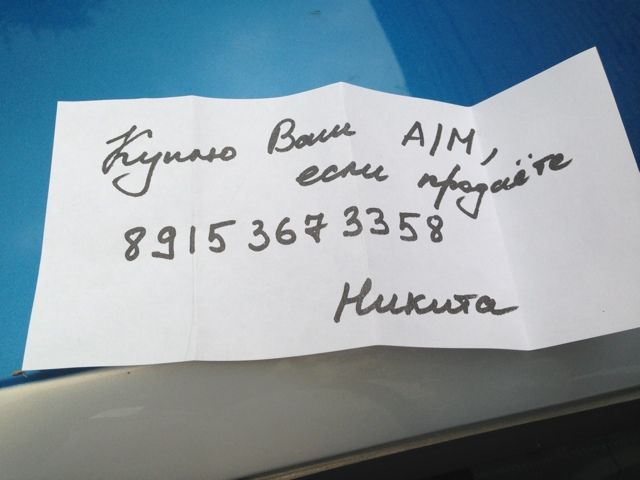 Куплю Ваш А/М,
если продаёте
89153673358
Никита